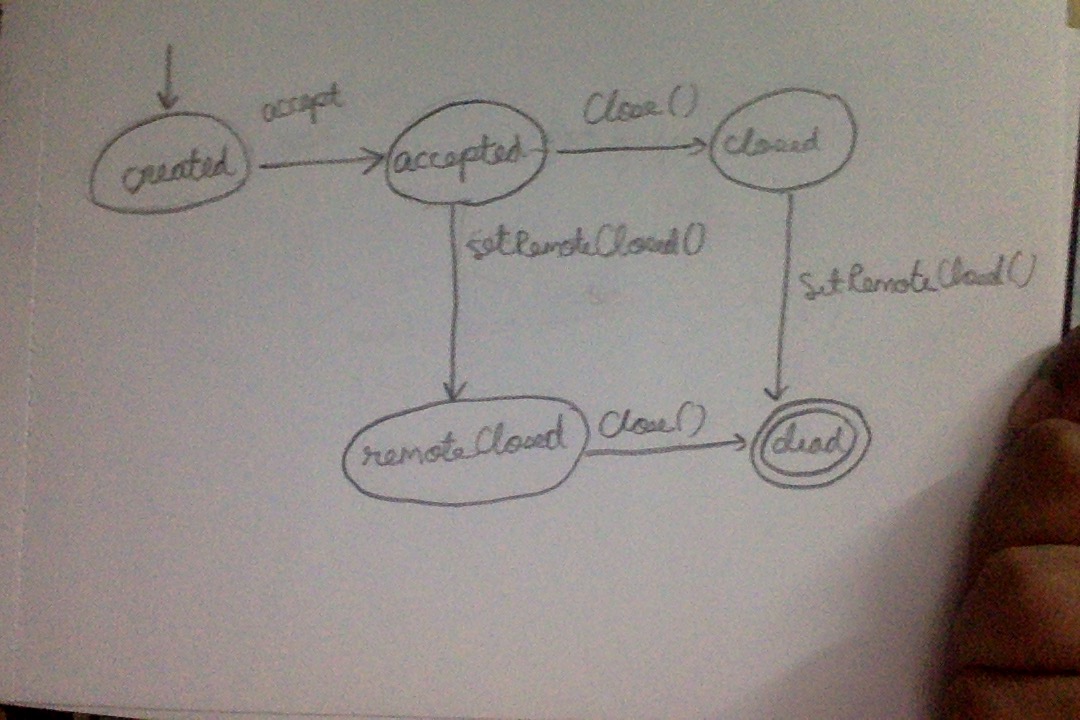 accept
Close()
created
accepted
closed
setRemoteClosed()
SetRemoteClosed()
remoteClosed
Close()
dead